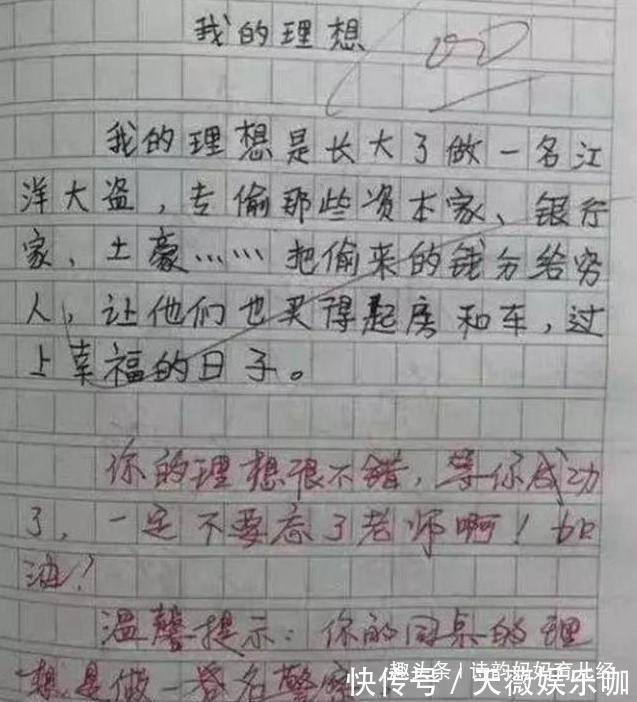 我的理想
我的理想是长大了做一名江
洋大盗,专偷那些资本家、银行
家、土豪……把偷来的钱分给穷
人,让他们也买得起房和车,过
上幸福的日子。
你的理想很不错,等你成功
了,一定不要忘了老师啊!加
油!
温馨提示:你的同桌的理
想是做一名警察
趣头条/诗韵妈妈育儿经
快传号/天薇娱乐咖